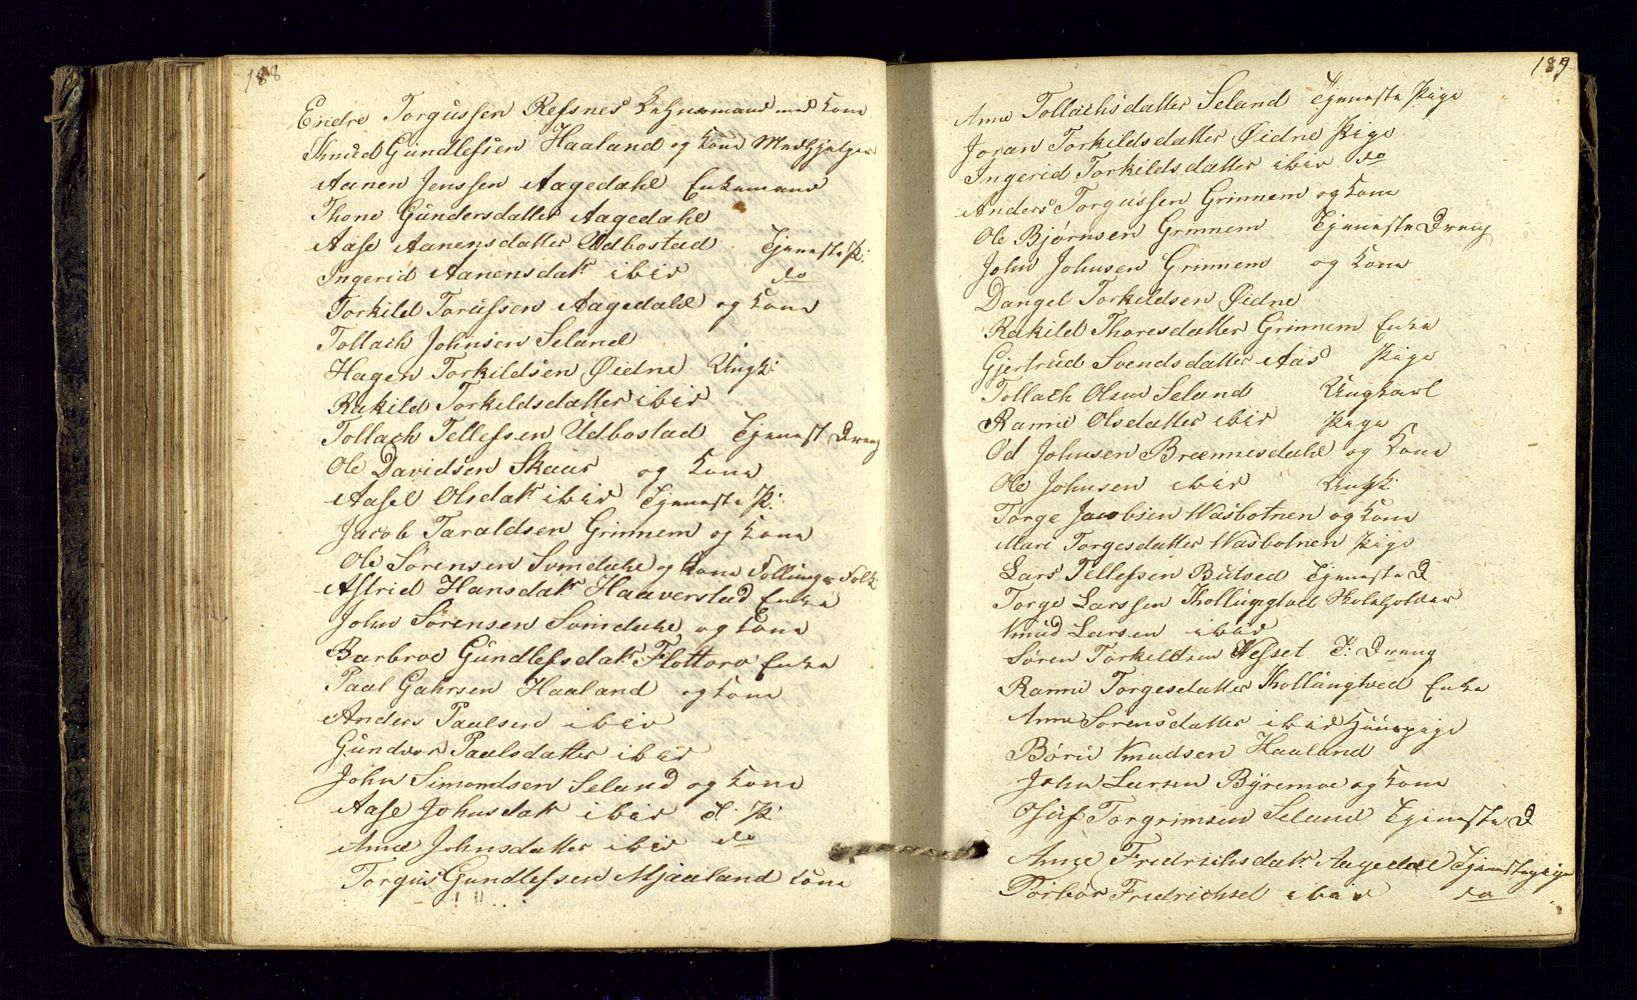 188
Endre Torgussen Refsnes Huusmand med Kone
Knud Gundlefsen Haaland og Kone Medhjelper
Aanen Jenssen Aagedahl Enkemand
Thone Gundersdatter Aagedahl
Aase Aanensdatter Udbostad Tjeneste P:
Ingerid Aanensdatr ibid do
Torkild Torussen Aagedahl og Kone
Tollach Johnsen Seland
Hagen Torkildsen Øidne Ungk:
Rakild Torkildsdatter ibid
Tollach Tellefsen Udbostad Tjenest Dreng
Ole Davidsen Skaar og Kone
Aasel Olsdatr ibid Tjeneste P:
Jacob Taraldsen Grinnem og Kone
Ole Sørensen Svindahl og Kone Follungs Folk
Astrid Hansdatr Haaverstad Enke
John Sørensen Svindahl og Kone
Barbroe Gundlefsdatr Flottoro Enke
Paal Gahrsen Haaland og Kone
Anders Paulsen ibid
Gundvor Paulsdatter ibid
John Simondsen Seland og Kone
Aase Johnsdatr ibid T. P:
Anne Johnsdatter ibid do
Torgus Gundlefsen Mjaaland Kone
189
Anne Tollachsdatter Seland Tjeneste Pige
Joran Torkildsdatter Øidne Pige
Ingerid Torkildsdatter ibid do
Anders Torgussen Grinnem og Kone
Ole Bjørnsen Grinnem Tjeneste Dreng
John Johnsen Grinnem og Kone
Dangel Torkildsen Øidne
Rakild Thoresdatter Grinnem Enke
Gjertrud Svendsdatter Aas Pige
Tollach Olsen Seland Ungkarl
Ranni Olsdatter ibid Pige
Od Johnsen Bræmnesdahl og Kone
Ole Johnsen ibid Ungk:
Torge Jacobsen Wasbotnen og Kone
Mari Torgesdatter Wasbotnen Pige
Lars Tellefsen Butved Tjeneste D
Torge Larssen Kollungtved Skoleholder
Knud Larsen ibid
Søren Torkildsen Vefset T: Dreng
Ranni Torgesdatter Kollungtved Enke
Anne Sørensdatter ibid Huuspige
Børii Knudsen Haaland
John Larsen Byremoe og Kone
Osuf Torgrimsen Seland Tjeneste D
Anne Fredrichsdatr Aagedal Tjenstepige
Torbor Fredrichsd ibid do